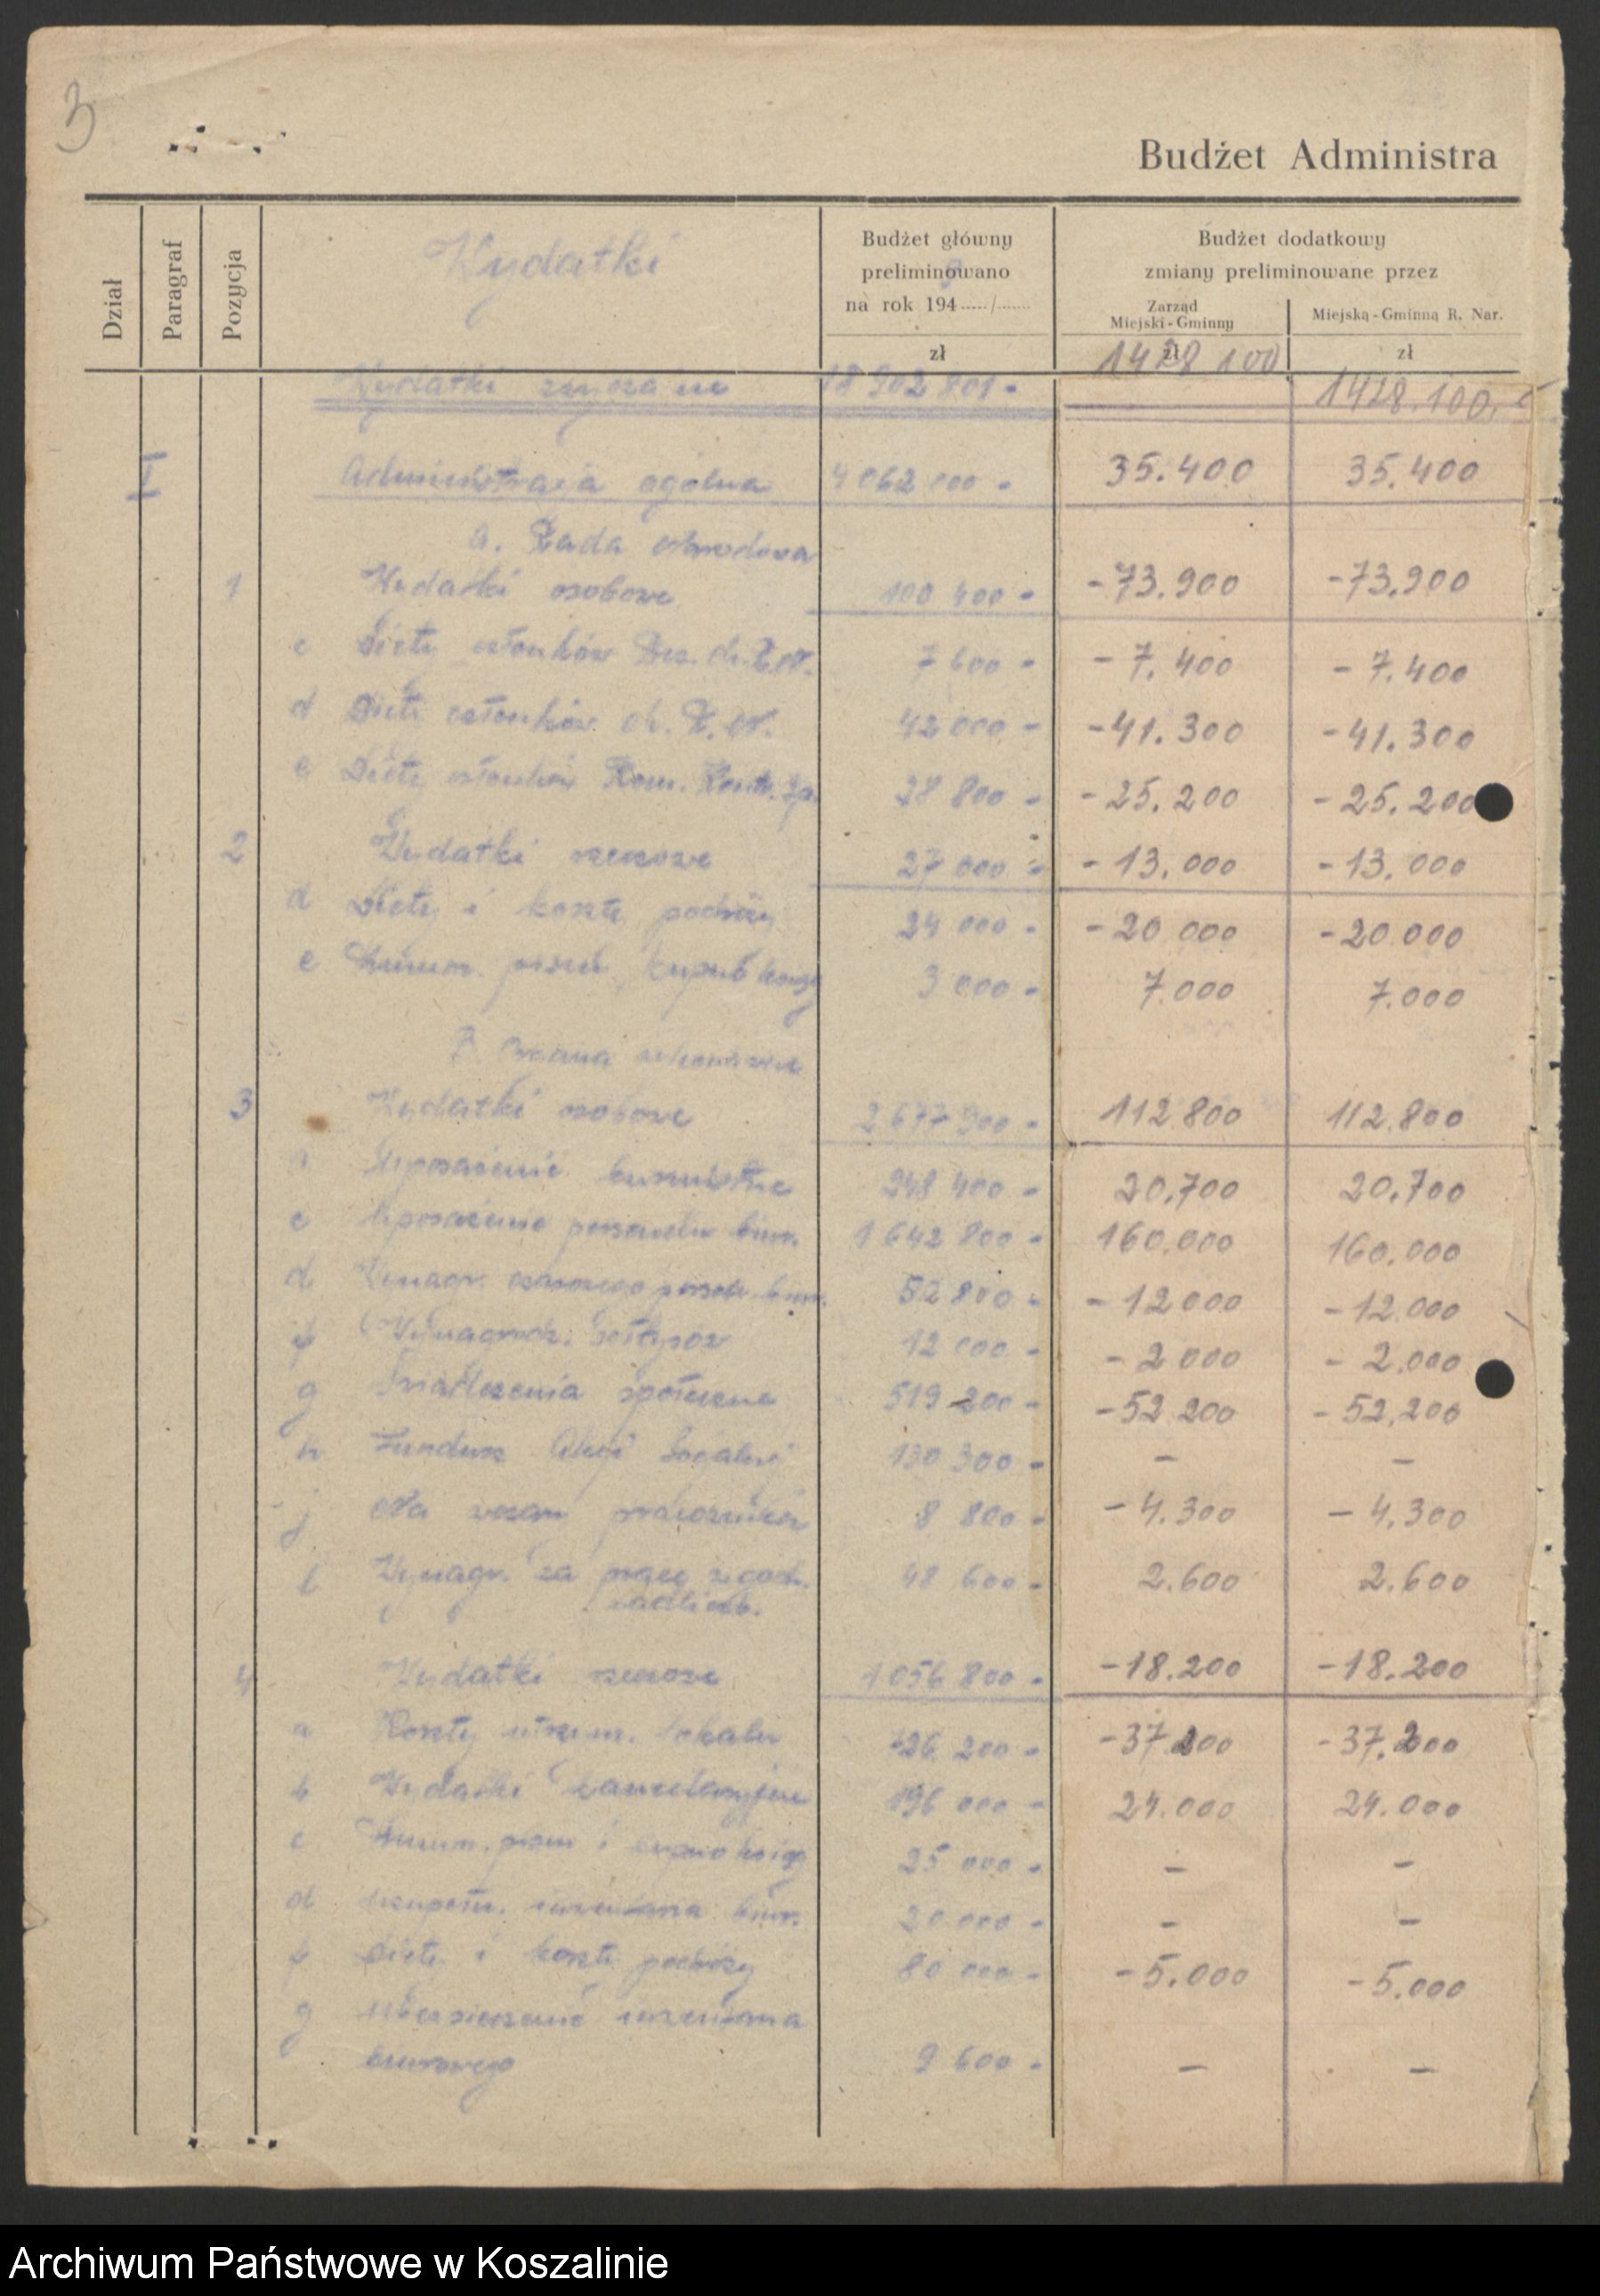 3
Budżet Administra
Dział
Paragraf
Pozycja
Wydatki
Budżet główny
preliminowano
na rok 194 /
zł
Budżet dodatkowy
zmiany preliminowane przez
Zarząd
Miejski-Gminny
zł
Miejską-Gminną R. Nar.
zł
Wydatki zwyczajne 18 902 801- 1428 100 1428.100,-
I Administracja ogólna 4 062 000- 35.400 35.400
a. Rada Narodowa
1 Wydatki osobowe 100 400- -73.900 -73.900
c Diety członków Prez. M.R.N. 7 600- -7.400 -7.400
d Diety członków M.R.N. 42 000- -41.300 -41.300
e Diety członków Kom. Kontr. 28 800- -25.200 -25.200
2 Wydatki rzeczowe 27 000- -13.000 -13.000
d Diety i koszty podróży 24 000- -20 000 -20.000
e Prenum. pism, zakup 3 000- 7.000 7.000
B Organa wykonawcze
3 Wydatki osobowe 2 677 900- 112 800 112.800
a Uposażenie burmistrza 248 400- 20.700 20.700
c Uposażenie personelu biur. 1 642 800- 160.000 160.000
d Wynagr. person. biur. 52 800- -12 000 -12.000
f Wynagrodz. Sołtysów 12 000- -2 000 -2.000
g Świadczenia społeczne 519 200- -52 200 -52,200
h Fundusz Akcji Socjalnej 130 300- – –
j Na pracowników 8 800- -4.300 -4.300
l Wynagr. za pracę w godz. 48 600- 2.600 2.600
nadliczb.
4 Wydatki rzeczowe 1 056 800- -18.200 -18.200
a Koszty utrzym. lokalu 726 200- -37 200 -37.200
b Wydatki kancelaryjne 196 000- 24.000 24.000
c Prenum. pism i 25 000- – –
d Uzupełn. urządzenia biur. 20.000- – –
f Diety i koszty podróży 80 000- -5.000 -5.000
g Ubezpieczenie urządzenia
biurowego 9 600- – –
Archiwum Państwowe w Koszalinie